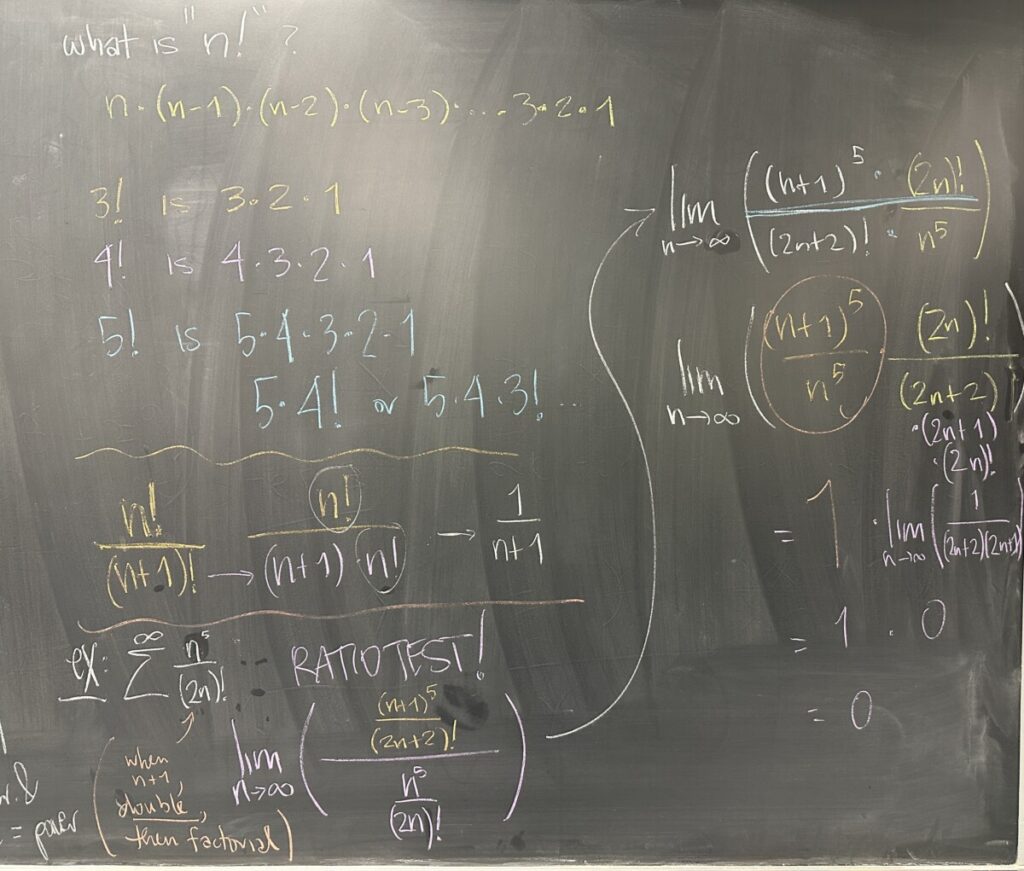 what is "n!" ?
n·(n-1)·(n-2)·(n-3)·...·3·2·1
3! is 3·2·1
4! is 4·3·2·1
5! is 5·4·3·2·1
5·4! or 5·4·3! ...
n!/(n+1)! → n!/((n+1)·n!) → 1/(n+1)
ex: ∑ ∞ n⁵/(2n)! RATIO TEST!
(when
n+1,
double,
then factorial)
lim n→∞ (((n+1)⁵/(2n+2)!)/(n⁵/(2n)!))
= power
→ lim n→∞ ((n+1)⁵/(2n+2)! · (2n)!/n⁵)
lim n→∞ ((n+1)⁵/n⁵ · (2n)!/(2n+2)
·(2n+1)
·(2n)!)
= 1 · lim n→∞ (1/((2n+2)(2n+1)))
= 1 · 0
= 0